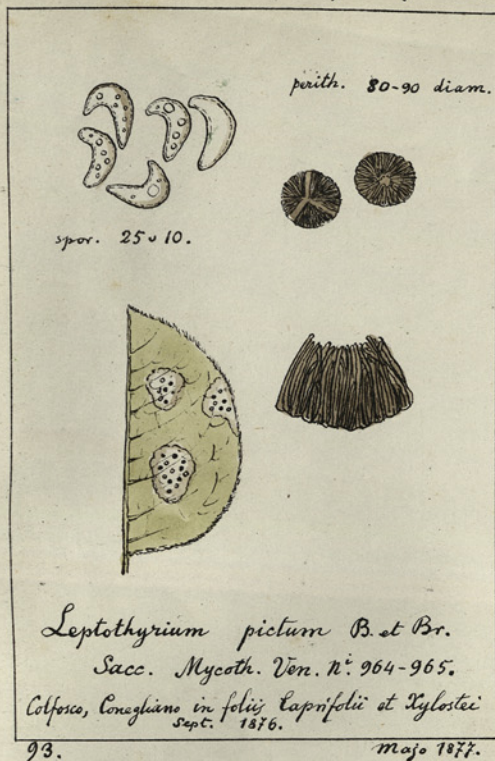 perith. 80-90 diam.
spor. 25 ᴗ 10.
Leptothyrium pictum B. et Br.
Sacc. Mycoth. Ven. nⁱ. 964-965.
Colfosco, Conegliano in foliis Caprifolii et Xylostei
Sept. 1876.
93. Majo 1877.